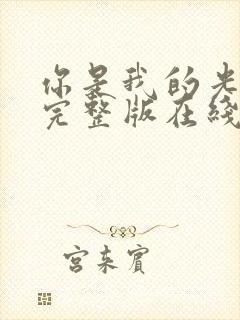 你是我的光
完整版在线
宫来宾